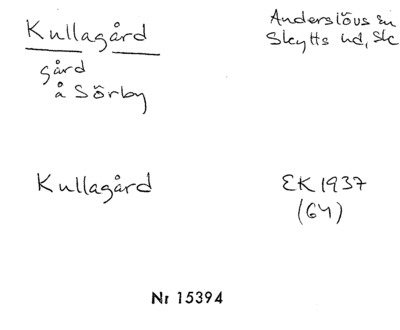 Kullagård
Anderslövs sn
Skytts hd, Sk
gård
å Sörby
Kullagård
EK 1937
(64)
Nr 15394